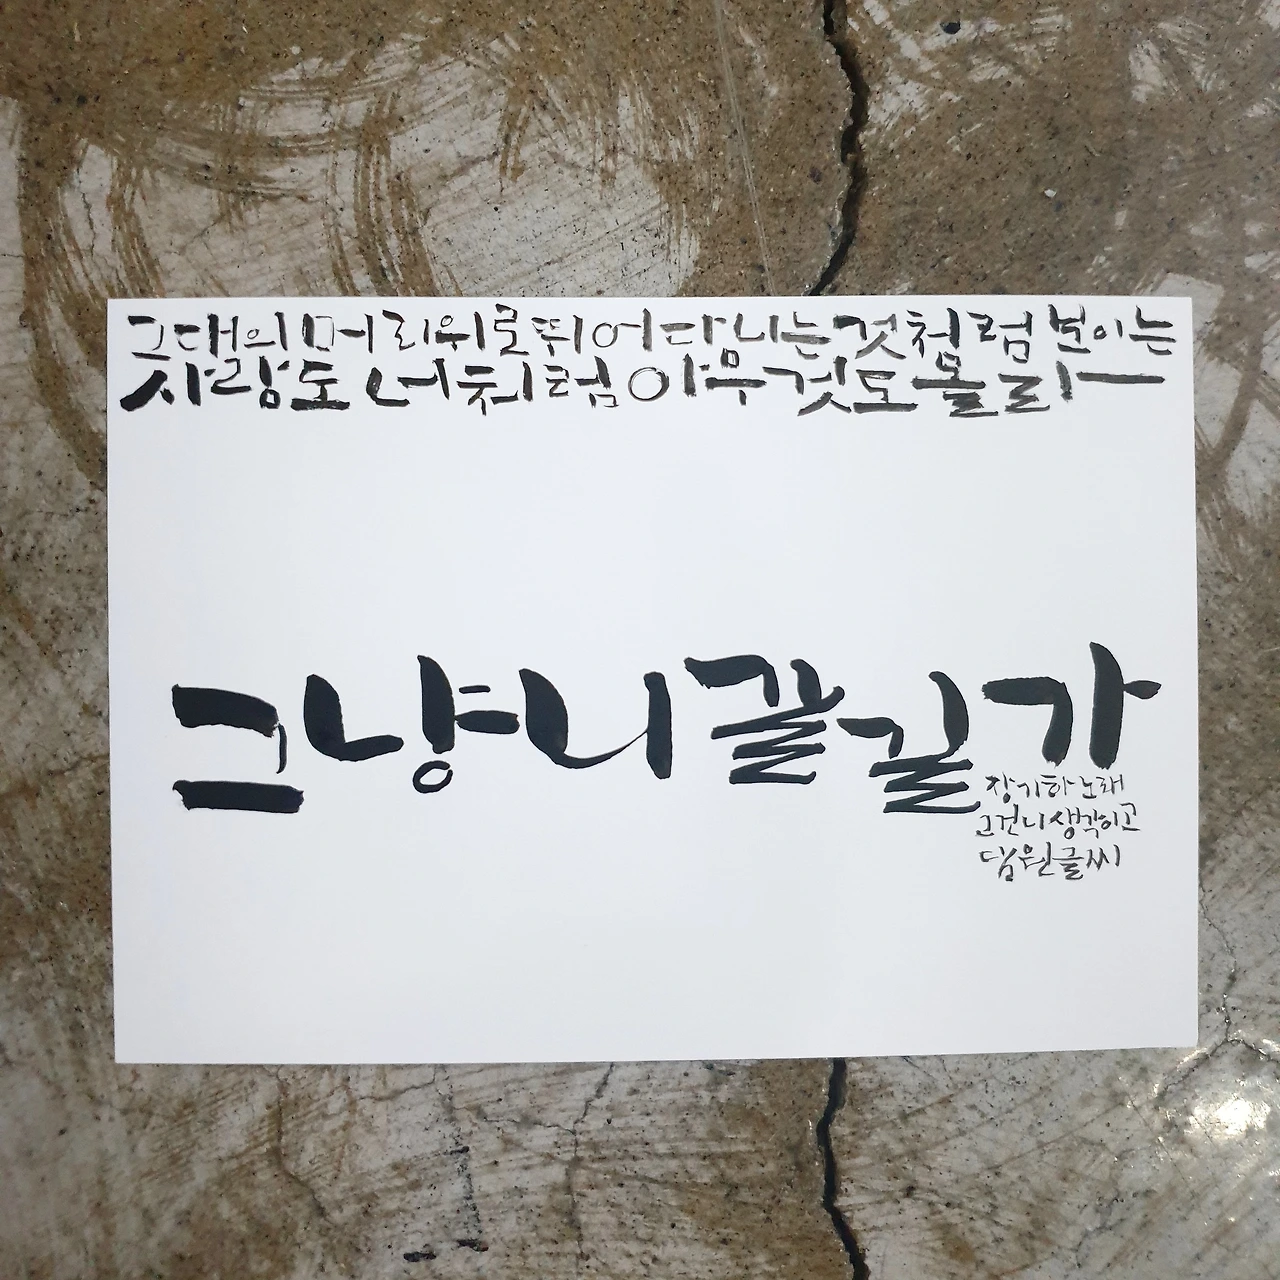 그대의 머리위로 뛰어다니는 것처럼 보이는
사람도 너처럼 아무것도 몰라
그냥니갈길가
장기하노래
그건니생각이고
담원글씨